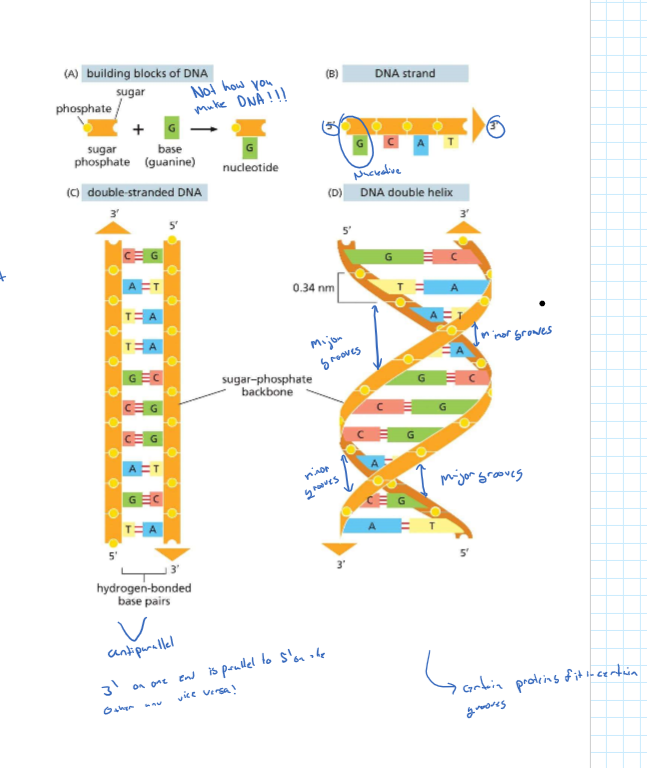 (A) building blocks of DNA
sugar
phosphate
Not how you
make DNA!!!
+
G
sugar
phosphate
base
(guanine)
G
nucleotide
(B) DNA strand
5'
3'
G C A T
(C) double-stranded DNA
3'
5'
C G
A T
T A
T A
G C
C G
C G
A T
G C
T A
5'
3'
hydrogen-bonded
base pairs
sugar–phosphate
backbone
(D) DNA double helix
5'
3'
0.34 nm
G C
T A
A T
A
G C
C G
C G
A
C G
A T
Major
grooves
minor grooves
minor
grooves
Major grooves
3'
5'
antiparallel
3' on one end is parallel to 5' on the
other and vice versa!
certain proteins fit in certain
grooves